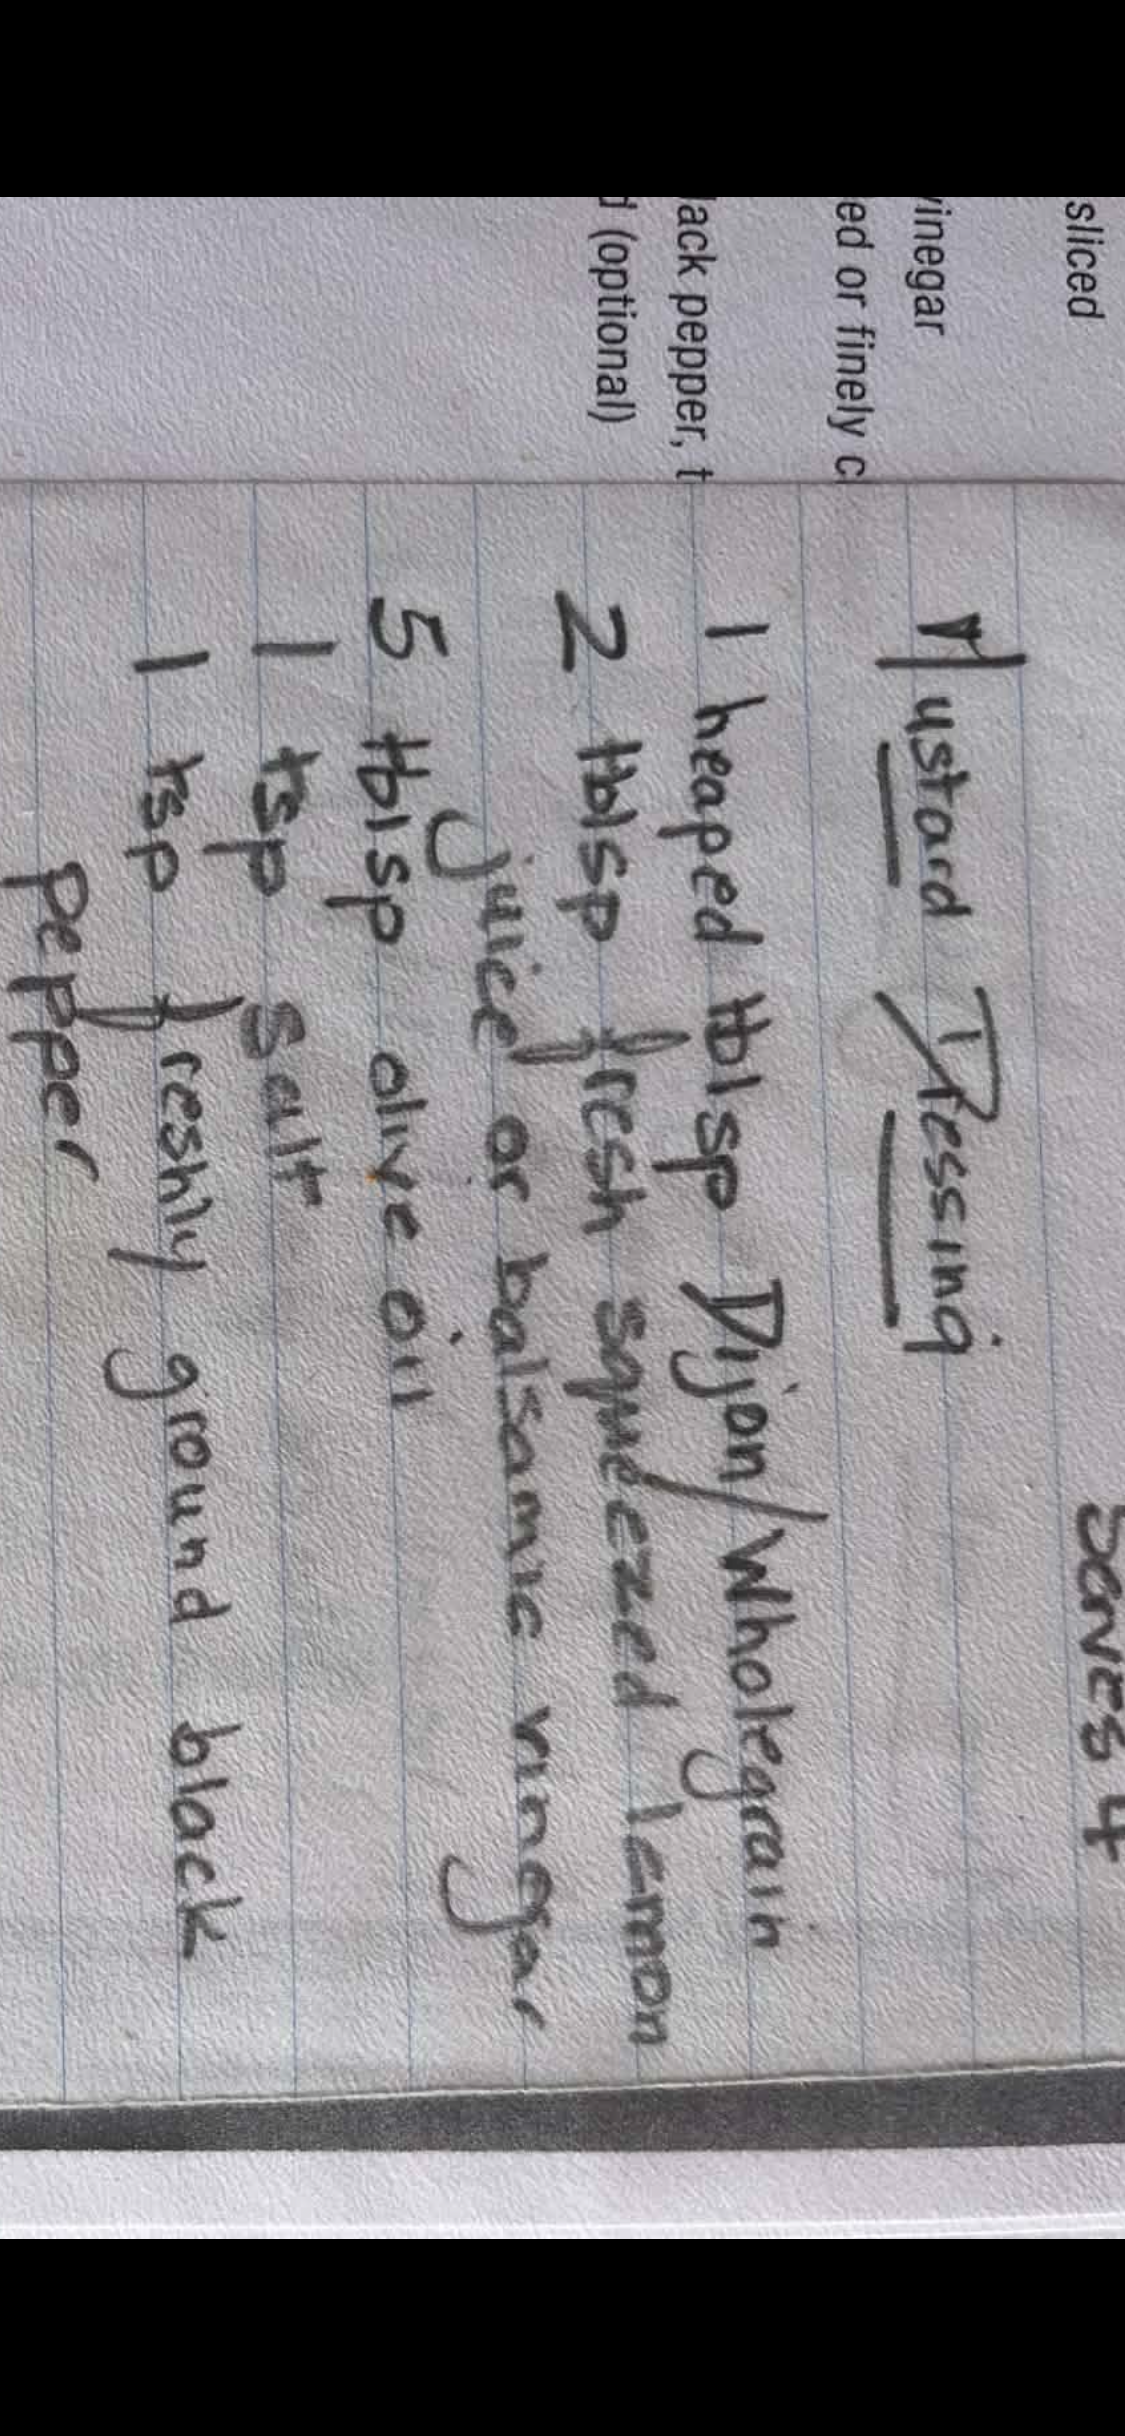 sliced
vinegar
ed or finely c
lack pepper, t
d (optional)
Serves 4
Mustard Dressing
1 heaped tblsp Dijon/Wholegrain
2 tblsp fresh squeezed lemon
juice or balsamic vinegar
5 tblsp olive oil
1 tsp salt
1 tsp freshly ground black
pepper